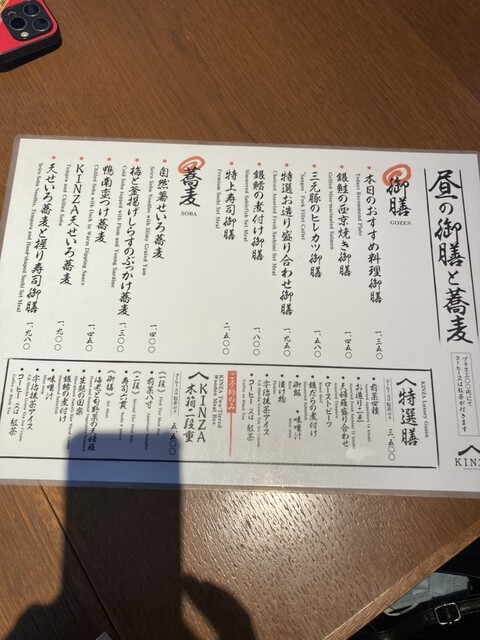 昼の御膳と蕎麦
御膳
GOZEN
本日のおすすめ料理御膳 一、三五〇
Todays Recommend Plate
銀鮭の西京焼き御膳 一、四五〇
Grilled Miso-marinated Salmon
三元豚のヒレカツ御膳 一、五八〇
"Sangen" Pork Fillet Cutlet
特選お造り盛り合わせ御膳 一、九五〇
Choicest Assorted Fresh Sashimi Set Meal
銀鱈の煮付け御膳 一、八〇〇
Simmered Sablefish Set Meal
特上寿司御膳 二、五〇〇
Premium Sushi Set Meal
蕎麦
SOBA
自然薯せいろ蕎麦 一、四〇〇
Seiro Soba Noodles with Slimy Grated Yam
梅と釜揚げしらすのぶっかけ蕎麦 一、三〇〇
Cold Soba topped with Plum and Young Sardine
鴨南蛮つけ蕎麦 一、四五〇
Chilled Soba with Duck in Warm Dipping Sauce
KINZA天せいろ蕎麦 一、九〇〇
Tempura and Chilled Soba
天せいろ蕎麦と握り寿司御膳 一、九〇〇
Seiro Soba Noodle, Tempura and Hand-shaped Sushi Set Meal
コーヒー又は紅茶が付きます
KINZ
KINZA Luxury Gozen
特選膳
三、五〇〇
前菜四種
お造り二点
天婦羅盛り合わせ
ローストビーフ
銀だらの煮付け
御飯 味噌汁
漬け物
宇治抹茶アイス
コーヒー又は紅茶
KINZA Two-Tiered Wooden Meal Box
KINZA
木箱二段重
五、五〇〇
《一段》
前菜八寸
《二段》
寿司六貫
《御膳》
海老と野菜の天婦羅
生麩の田楽
銀鱈の煮付け
味噌汁
宇治抹茶アイス
コーヒー又は紅茶